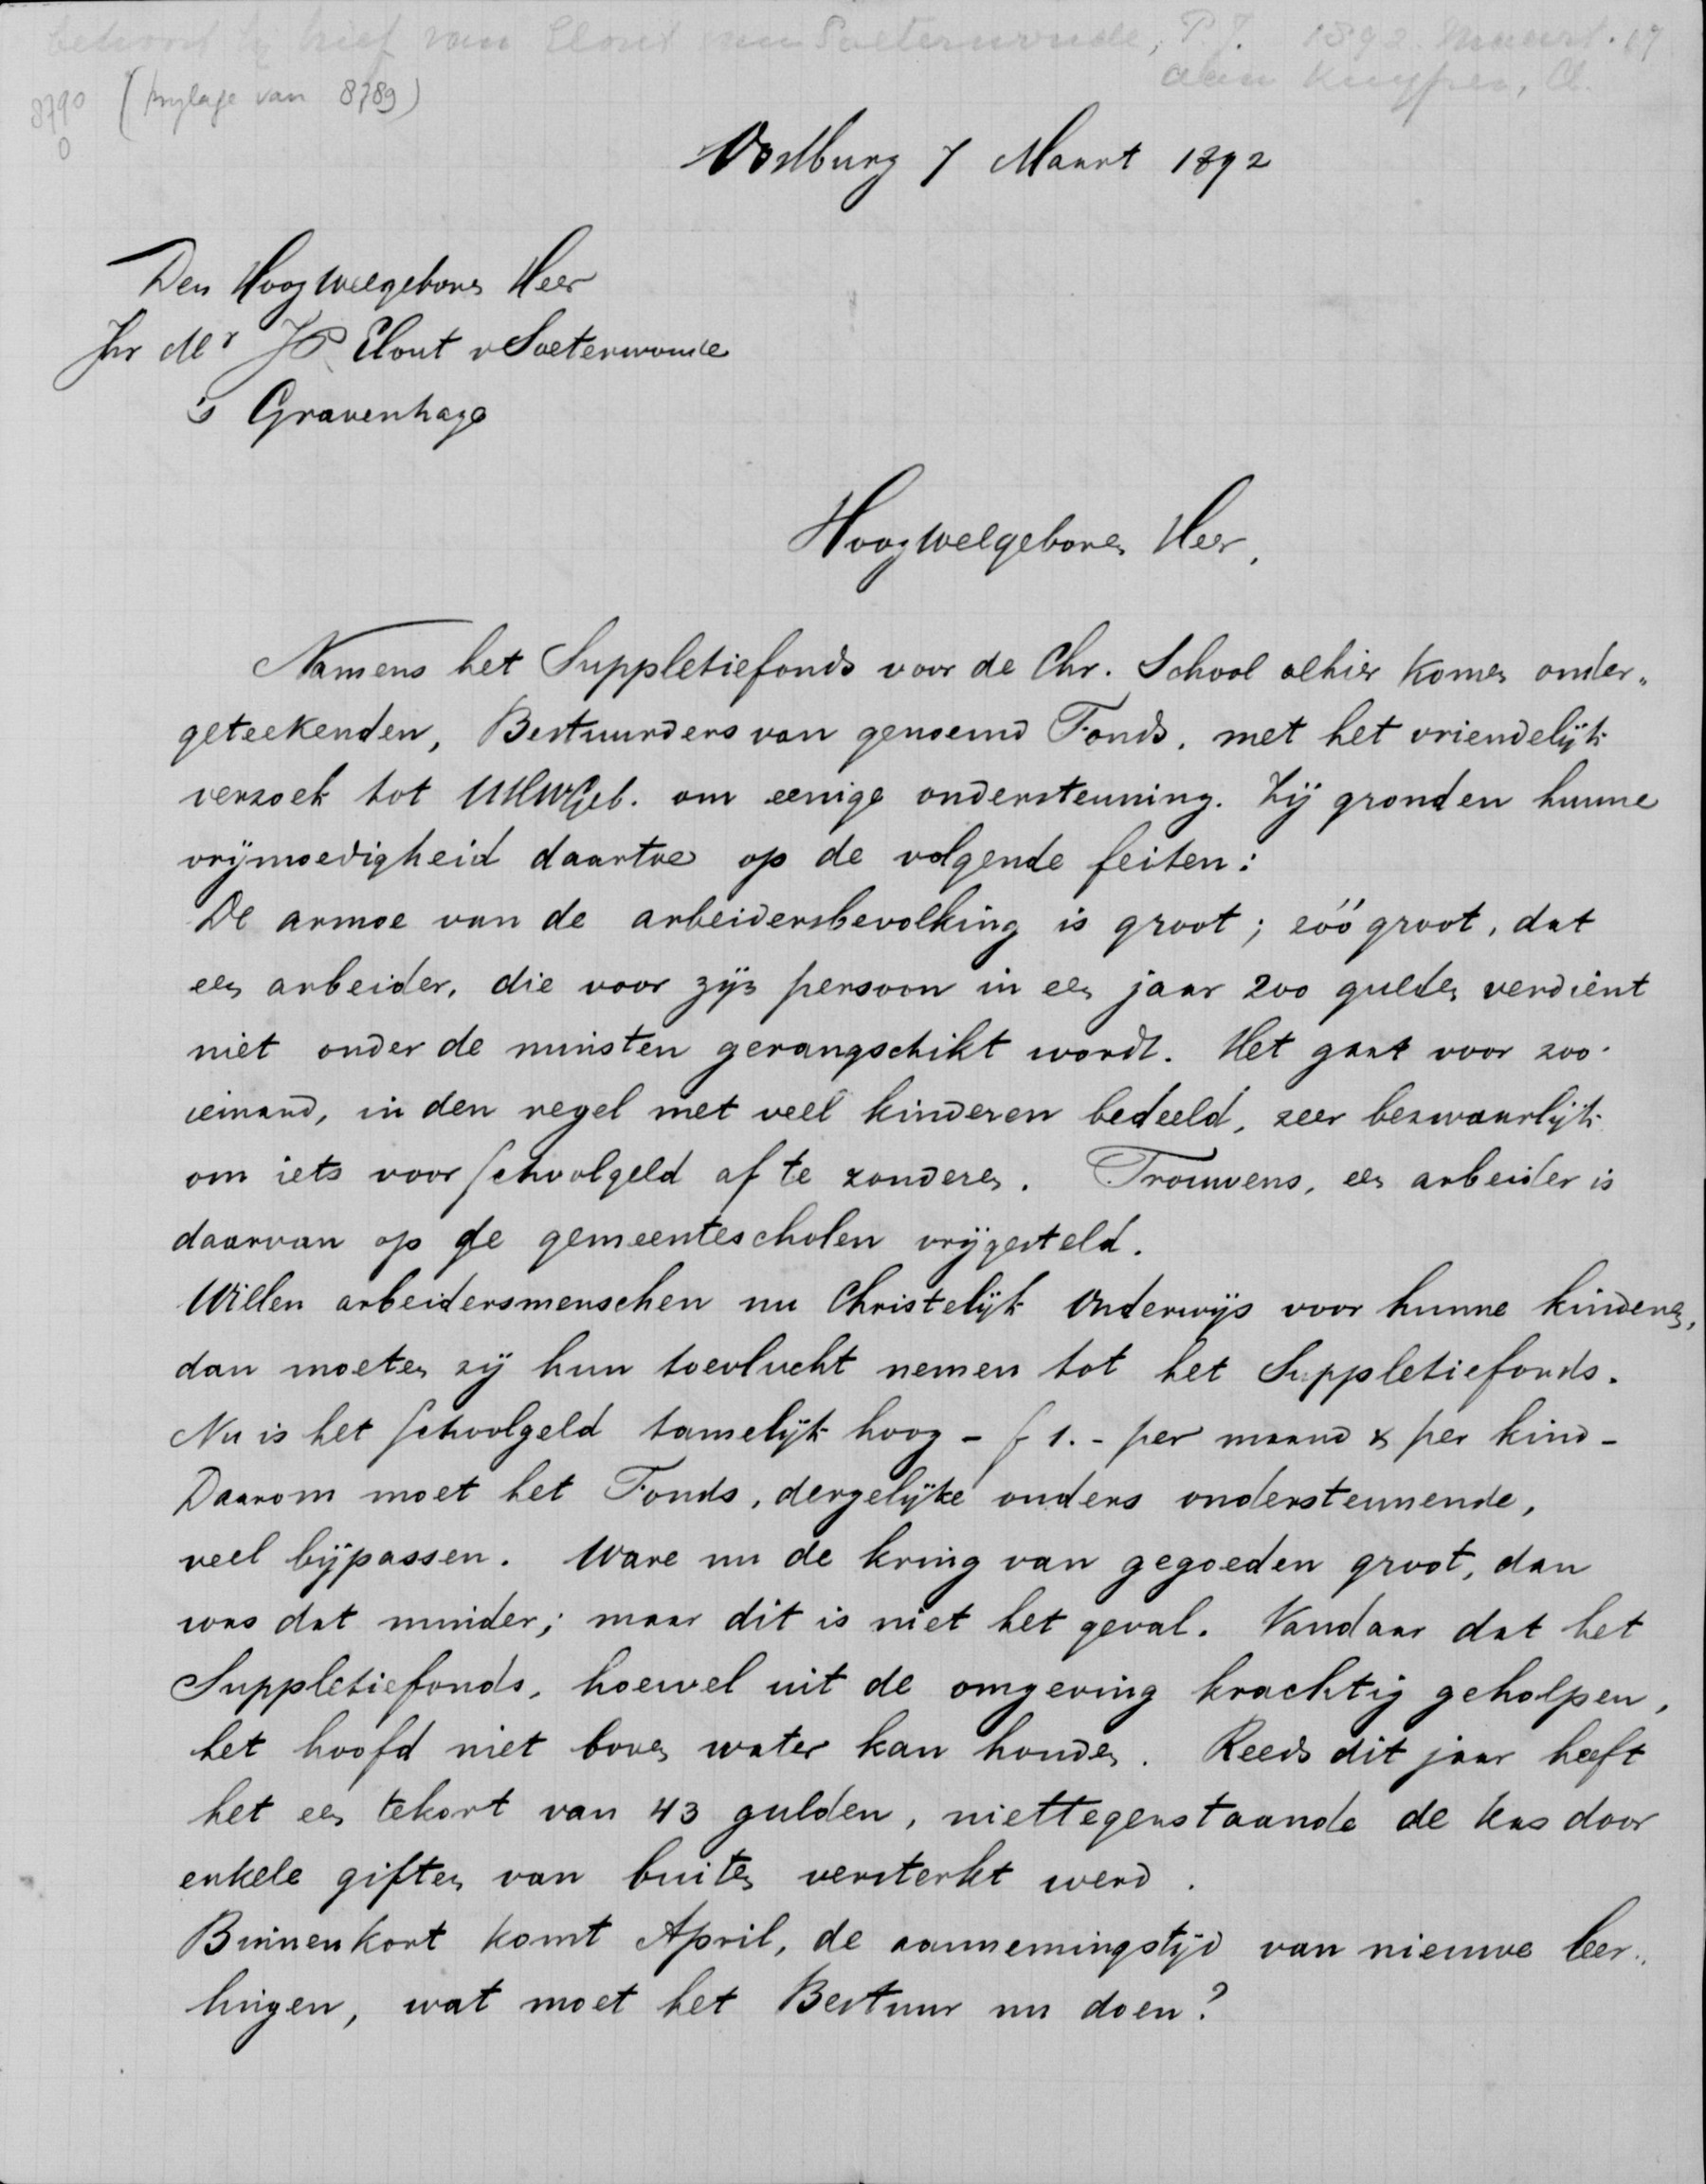 behoort bij brief van Elout van Soeterwoude, P.J. 1892. Maart. 17
aan Kuyper, A.
8790 (bijlage van 8789)
0
Oostburg 7 Maart 1892
Den Hoogwelgeboren Heer
Jhr Mr JP Elout v Soeterwoude
's Gravenhage
Hoogwelgeboren Heer,
Namens het Suppletiefonds voor de Chr. School alhier komen onder„
geteekenden, Bestuurders van genoemd Fonds, met het vriendelijk
verzoek tot UHWGeb. om eenige ondersteuning. Zij gronden hunne
vrijmoedigheid daartoe op de volgende feiten:
De armoe van de arbeidersbevolking is groot; zóó groot, dat
een arbeider, die voor zijn persoon in een jaar 200 gulden verdient
niet onder de minsten gerangschikt wordt. Het gaat voor zoo
iemand, in den regel met veel kinderen bedeeld, zeer bezwaarlijk
om iets voor schoolgeld af te zonderen. Trouwens, een arbeider is
daarvan op de gemeentescholen vrijgesteld.
Willen arbeidersmenschen nu Christelijk Onderwijs voor hunne kinderen,
dan moeten zij hun toevlucht nemen tot het Suppletiefonds.
Nu is het schoolgeld tamelijk hoog – f 1.- per maand & per kind –
Daarom moet het Fonds, dergelijke ouders ondersteunende,
veel bijpassen. Ware nu de kring van gegoeden groot, dan
was dat minder; maar dit is niet het geval. Vandaar dat het
Suppletiefonds, hoewel uit de omgeving krachtig geholpen,
het hoofd niet boven water kan houden. Reeds dit jaar heeft
het een tekort van 43 gulden, niettegenstaande de kas door
enkele giften van buiten versterkt werd.
Binnenkort komt April, de aannemingstijd van nieuwe leer„
lingen, wat moet het Bestuur nu doen?